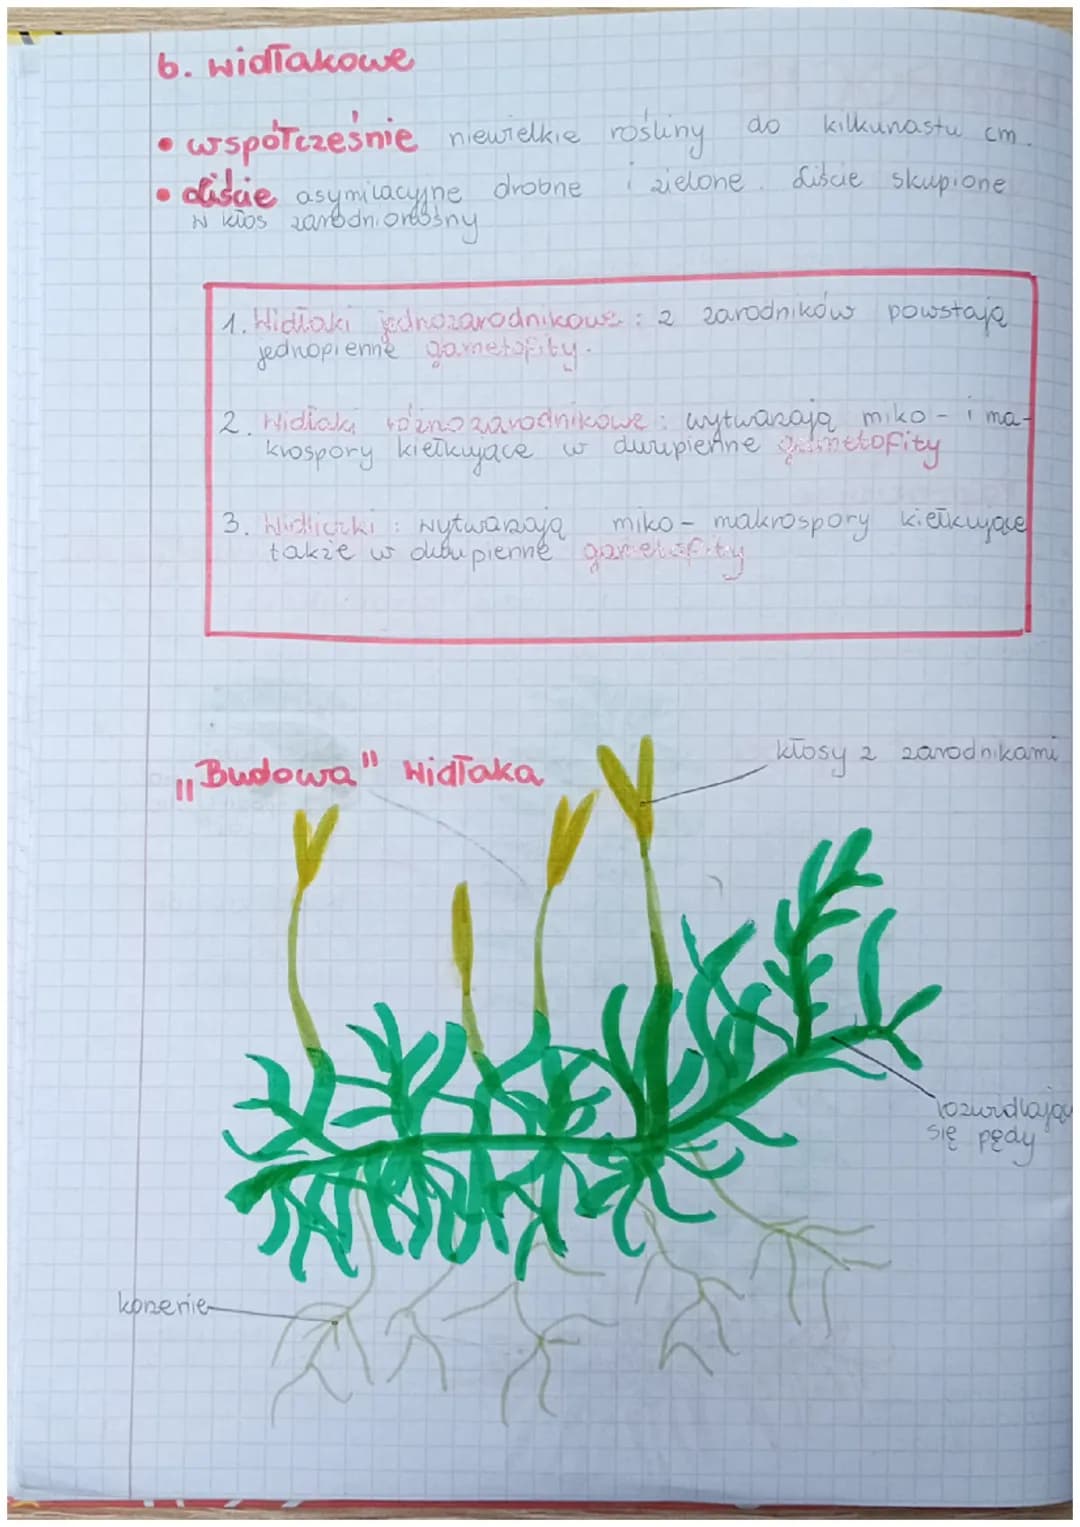 b. widłakowe
• współcześnie niewielkie rośliny do kilkunastu cm.
• liście asymilacyjne drobne i zielone. Liście skupione
w kłos zarodnionośny
1. Widłaki jednozarodnikowe : z zarodników powstają
jednopienne gametofity.
2. Widłaki różnozarodnikowe : wytwarzają miko- i ma-
krospory kiełkujące w dwupienne gametofity
3. Widliczki : wytwarzają miko- makrospory kiełkujące
także w dwupienne gametofity
"Budowa" widłaka
kłosy z zarodnikami
rozwidlające
się pędy
korzenie